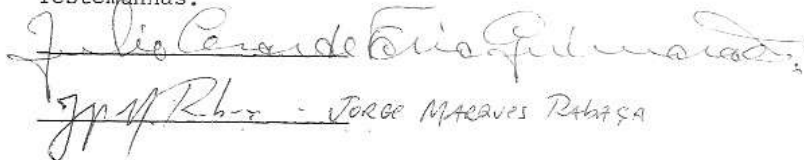 Testemunhas:
Julio Cesar de Faria Guimarães
- JORGE MARQUES RABAÇA